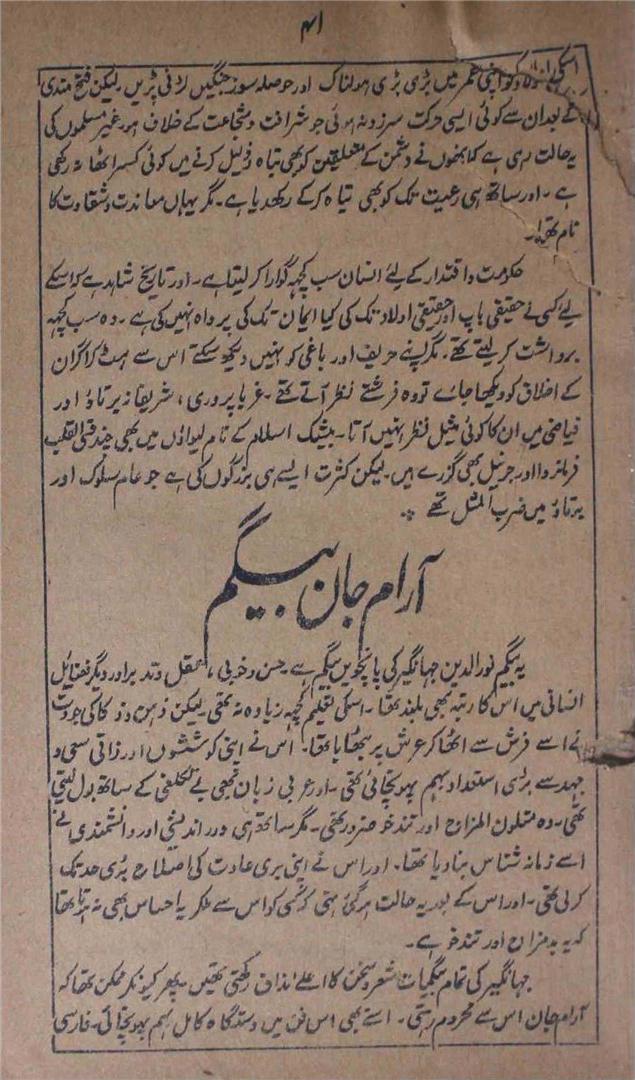 ۴۱
کو اپنی عمر میں بڑی بڑی ہولناک اور حوصلہ سوز جنگیں لڑنی پڑیں لیکن فتح مندی
کے بعد ان سے کوئی ایسی حرکت سرزد نہ ہوئی جو شرافت و شجاعت کے خلاف ہو غیر مسلموں کی
یہ حالت رہی ہے کہ انہوں نے دشمن کے متعلقین کو بھی تباہ و ذلیل کرنے میں کوئی کسر اٹھا نہ رکھی
ہے۔ اور ساتھ ہی رعیت تک کو بھی تباہ کر کے رکھدیا ہے۔ مگر یہاں معاندت و شقاوت کا
نام تھا۔
حکومت و اقتدار کے لئے انسان سب کچھہ گوارا کر لیتا ہے۔ اور تاریخ شاہد ہے کہ اسکے
لیے کسی نے حقیقی باپ اور حقیقی اولاد تک کی کیا ایمان تک کی پرواہ نہیں کی ہے۔ وہ سب کچھہ
برداشت کر لیتے تھے۔ مگر اپنے حریف اور باغی کو نہیں دیکھ سکتے اس سے ہٹ کر اگر ان
کے اخلاق کو دیکھا جائے تو وہ فرشتے نظر آتے تھے۔ غربا پروری، شریفانہ برتاؤ اور
فیاضی میں ان کا کوئی مثیل نظر نہیں آتا۔ بیشک اسلام کے نام لیواؤں میں بھی چند قسی القلب
فرمانروا اور جرنیل بھی گزرے ہیں لیکن کثرت ایسے ہی بزرگوں کی ہے جو عام سلوک اور
برتاؤ میں ضرب المثل تھے
آرام جان بیگم
یہ بیگم نور الدین جہانگیر کی پانچویں بیگم ہے۔ حسن و خوبی، عقل و تدبر اور دیگر فضائل
انسانی میں اس کا رتبہ بھی بلند تھا۔ اسکی تعلیم کچھہ زیادہ نہ تھی۔ لیکن ذہن و ذکا کی جودت
نے اسے فرش سے اٹھا کر عرش پر بٹھا یا تھا۔ اس نے اپنی کوششوں اور ذاتی سعی و
جہد سے بڑی استعداد بہم پہونچائی تھی۔ اور عربی زبان بھی بے تکلفی کے ساتھ بول لیتی
تھی۔ وہ متلون المزاج اور تند خو ضرور تھی۔ مگر ساتھ ہی دور اندیشی اور دانشمندی نے
اسے زمانہ شناس بنا دیا تھا۔ اور اس نے اپنی بری عادت کی اصلاح بڑی حد تک
کر لی تھی۔ اور اس کے بعد یہ حالت ہو گئی تھی کہ کسی کو اس سے ملکر یہ احساس بھی نہ ہوتا تھا
کہ یہ بدمزاج اور تند خو ہے۔
جہانگیر کی تمام بیگمات شعر و سخن کا اعلے مذاق رکھتی تھیں۔ پھر کیونکر ممکن تھا کہ
آرام جان اس سے محروم رہتی۔ اسنے بھی اس فن میں دستگاہ کامل بہم پہونچائی۔ فارسی